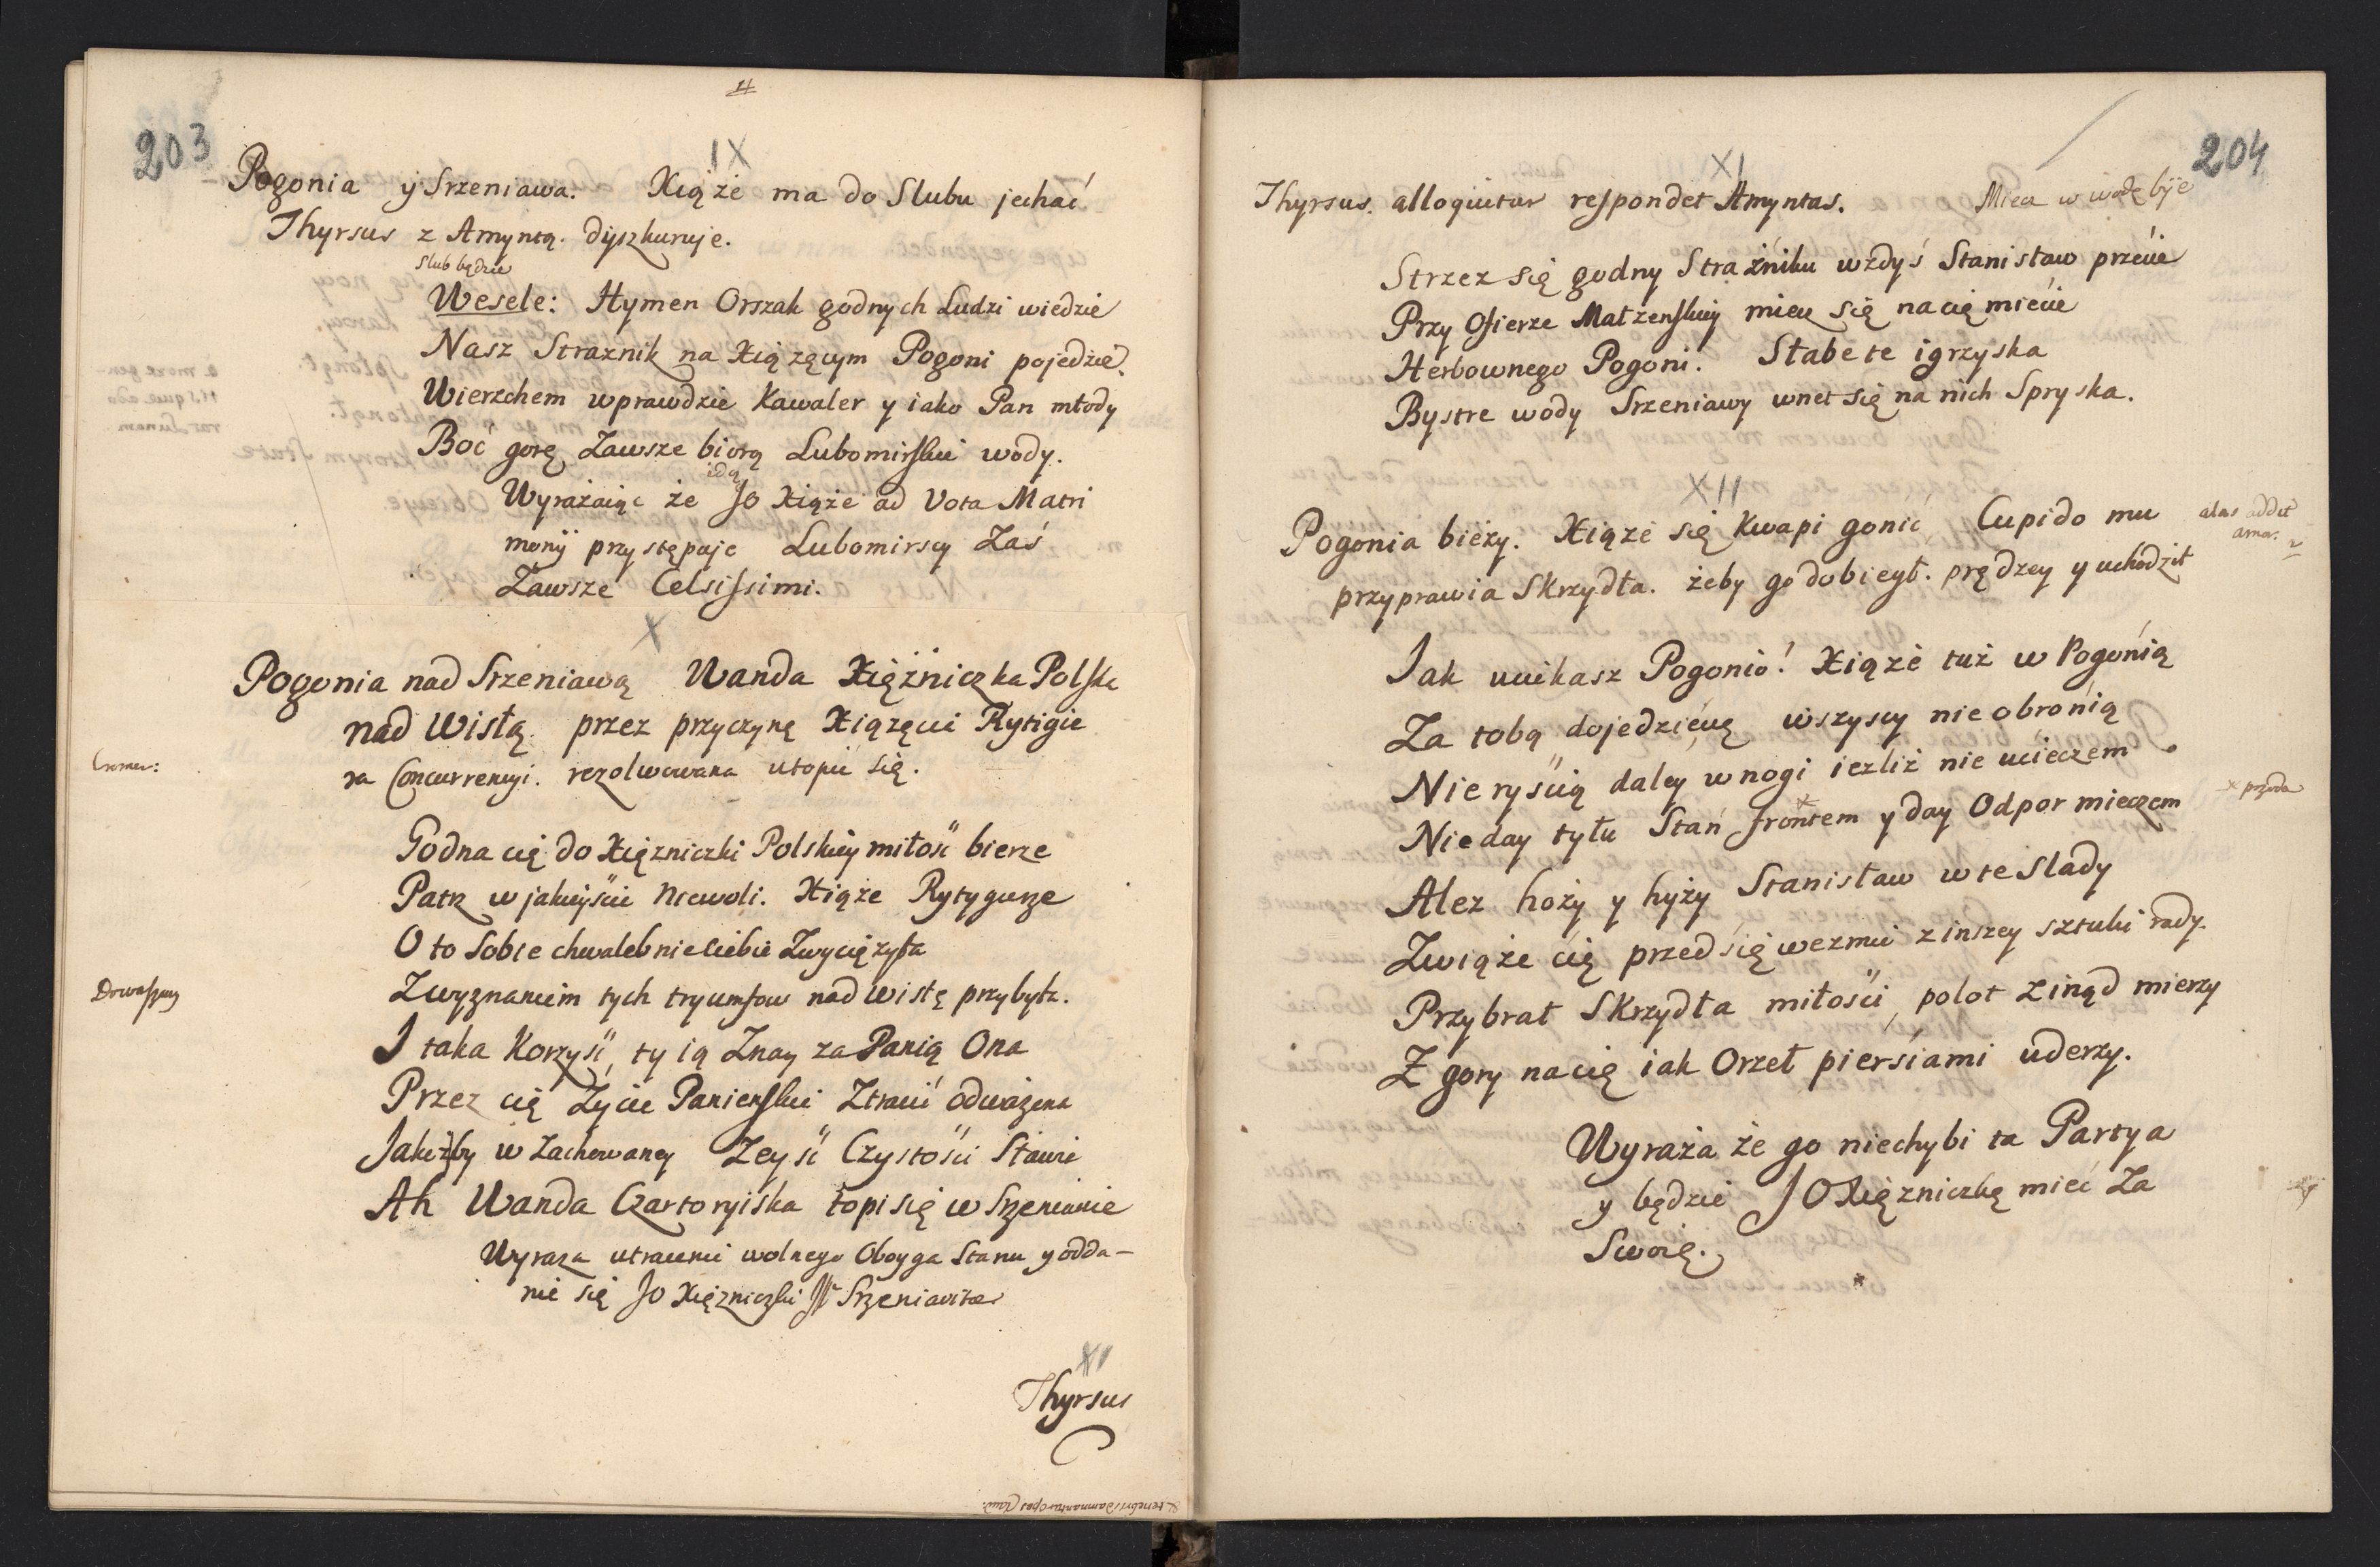 203
IX
Pogonia y Srzeniawa. Xiąże ma do Slubu jechać
Thyrsus z Amyntą. dyszkuruje.
Slub będzie
Wesele: Hymen Orszak godnych Ludzi wiedzie
Nasz Straznik na Xiązęcym Pogoni pojedzie.
Wierzchem wprawdzie Kawaler y iako Pan młody
Boć gorę zawsze biorą Lubomirskie wody.
idą
Wyrażaiąc że JO Xiąże ad Vota Matri
monij przystępuje Lubomirscy Zaś
Zawsze Celsissimi.
X
Pogonia nad Srzeniawą Wanda Xiężniczka Polska
nad Wisłą przez przyczynę Xiązęcia Rytigie
Cromer:
ra Concurrencyi. rezolwowana utopić się.
Godna cię do Xiężniczki Polskiey miłość bierze
Patrz w jakieyście Niewoli. Xiąże Rytygierze
Oto Sobie chwalebnie Ciebie Zwyciężyła
Drwaszny
Zwyznaniem tych tryumfow nad Wisłę przybyła.
I taka Korzyść, ty ią Znay za Panią Ona
Przez cię Życie Panieńskie Ztracić odważona
Jakożby w Zachowaney Zeyść Czystości Sławie
Ah Wanda Czartoryiska topi się w Srzeniawie
Wyraza utracenie wolnego Oboyga Stanu y odda-
nie się JO Xiężniczki Srzeniawitae
XI
Thyrsus
204
XI
Thyrsus. alloquitur respondet Amyntas. Miecz w wodę bije
Strzez się godny Strażniku wzdyś Stanisław przecie
Przy Ofierze Małzenskiey miecz się na cię miecie
Herbownego Pogoni. Słabe te igrzyska
Bystre wody Srzeniawy wnet się na nich Spryska.
XII
Pogonia bieży. Xiąże się Kwapi gonić Cupido mu
alas addit
amor.
przyprawia Skrzydła. żeby go dobiegł. prędzey y uchodził
Jak ucikasz Pogonio! Xiąże tuż w Pogonią
Za tobą dojedzie cię wszyscy nie obronią
Nie ryścią daley w nogi iezliż nie ucieczem
Nie day tyłu Stań frontem y day Odpor mieczem
x przoda
Alez hoży y hyży Stanisław w te Slady
Zwiąże cię przedsię wezmie z inszey sztuki rady.
Przybrał Skrzydła miłości, polot zinąd mierzy
Z gory na cię iak Orzeł piersiami uderzy.
Wyraża że go niechybi ta Partya
y będzie JO Xiężniczkę mieć Za
Swoię.